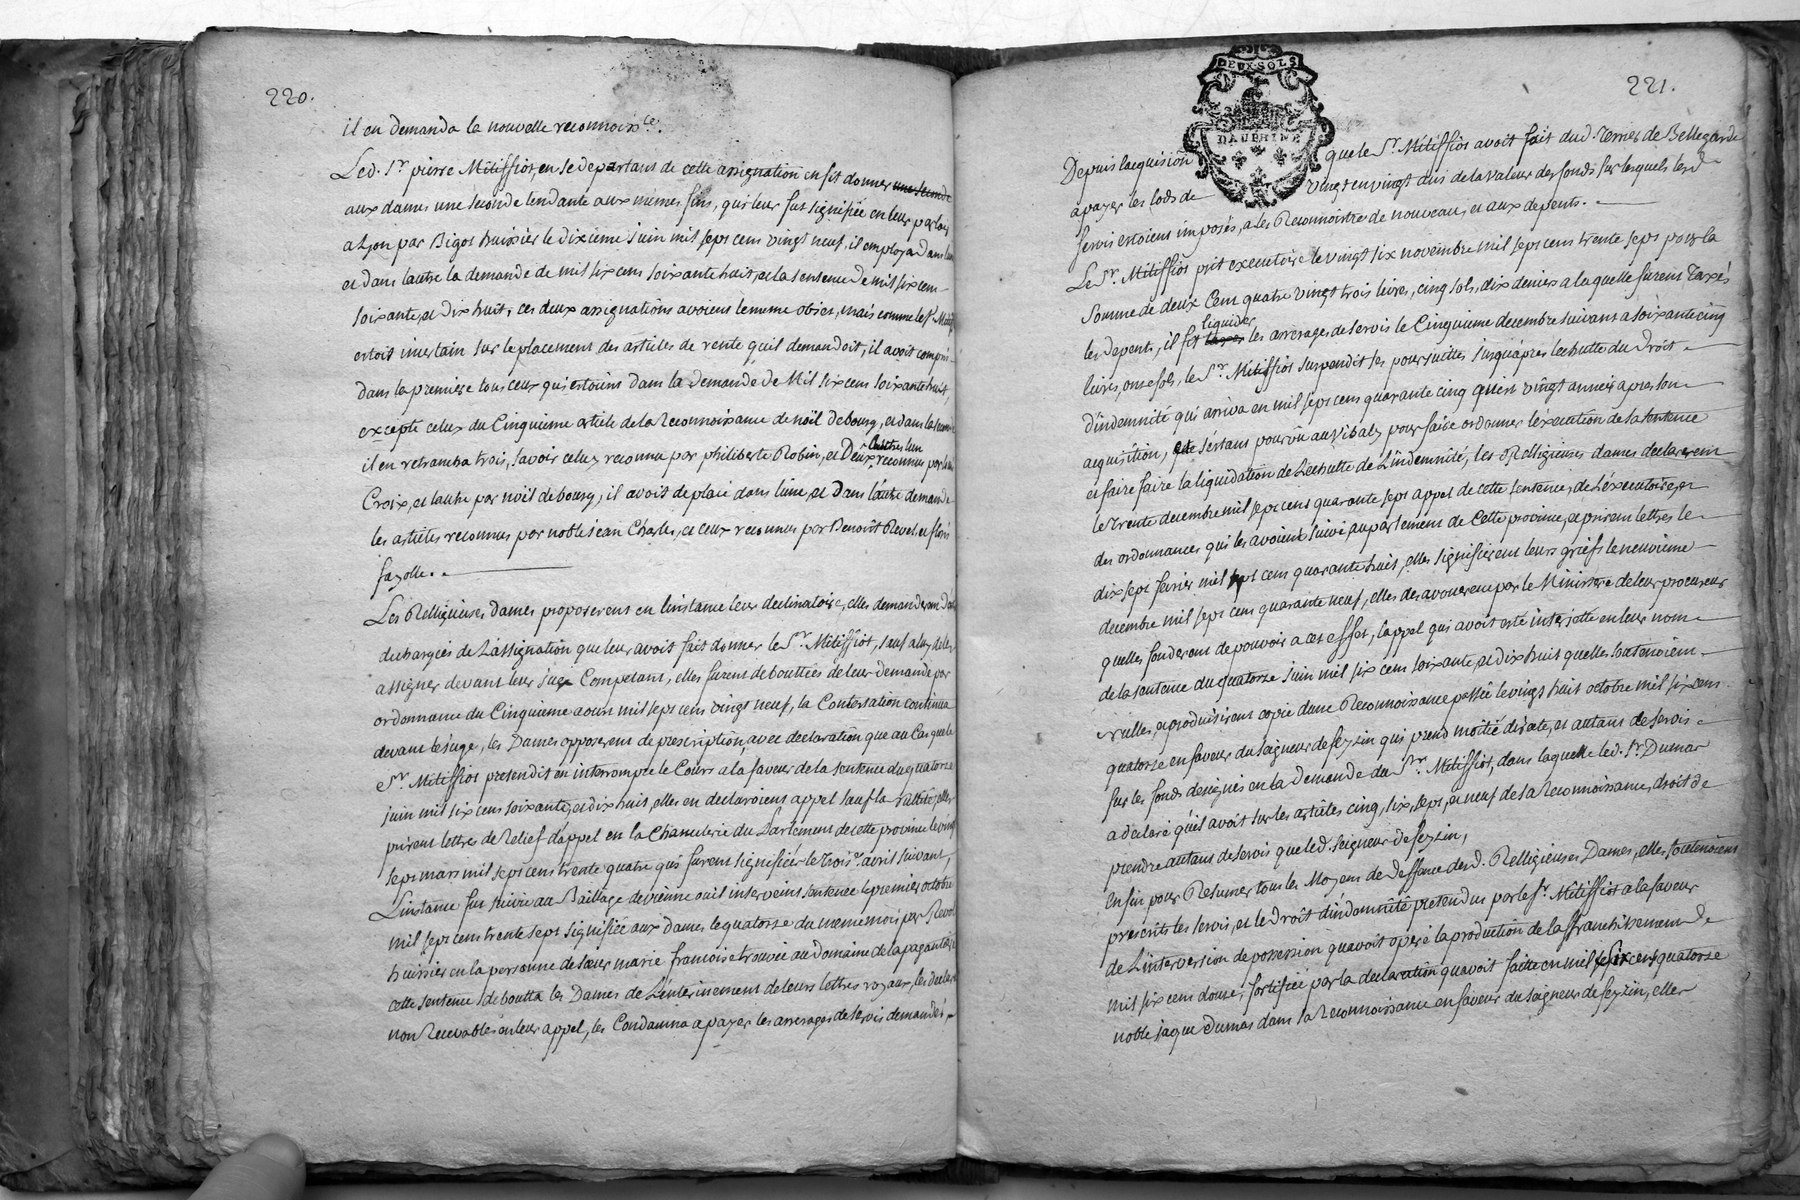 220.
il en demanda la nouvelle reconnoix.ce.
Led. Sr. pierre Mitiffiot, en se departant de cette assignation en fit donner une seconde
aux dames une seconde tendante aux mêmes fins, qui leur fut signifiée en leur parloir
a Lyon par Bigot huissier le dixieme juin mil sept cens vingt neuf, il employa dans lune
et dans lautre la demande de mil six cens soixante huit, et la sentence de mil six cens
soixante et dix huit, ces deux assignations avoient le meme objet, mais comme le Sr. Mitiff
estoit incertain sur le placement des articles de rente quil demandoit, il avoit compri
dans la premiere tous ceux qui estoient dans la demande de Mil six cens soixante huit,
excepte celuy du Cinquieme article de la Reconnoissance de noël Debourg, et dans la seconde
il en retrancha trois, savoir celuy reconnu par philiberte Robin, et Deux autres lun reconnus par
Croix, et lautre par noël debourg, il avoit deplacé dans lune, et Dans lautre demande
les articles reconnus par noble jean Charles, et ceux reconnus par Benoist Revel, et
fayolle.
Les Relligieuses Dames proposerent en linstance leur declinatoire, elles demanderent
dechargées de Lassignation que leur avoit fait donner le Sr. Mitiffiot, sauf a luy de les
assigner devant leur juge Competant, elles furent deboutées de leur demande par
ordonnance du Cinquieme aoust mil sept cens vingt neuf, la Contestation continua
devant le juge, les Dames opposerent de prescription, avec declaration que au Cas que le
Sr. Mitiffiot pretendit en interrompre le Cours a la faveur de la sentence du quatorze
juin mil six cens soixante, et dix huit, elles en declaroient appel sauf la nullité, elles
prirent lettres de Relief dappel en la Chancelerie du Parlement de cette province le vingt
sept mars mil sept cens trente quatre qui furent signifiées le Trois.e avril suivant,
Linstance fut suivie au Baillage de vienne ou il interveint sentence le premier octobre
mil sept cens trente sept signifiée aux dames le quatorze du meme mois par Revol
huissier en la personne de sœur marie francoise trouvée au domaine de la
cette sentence debouta les Dames de Lenterinement de leurs lettres royaux, les declara
non Recevables en leur appel, les Condamna a payer les arrerages de servis demandés,
DEUX.SOLS
DAUPHINE
221.
Depuis lacquisition que le Sr. Mitiffiot avoit fait dud. Terrier de Bellegarde
a payer les lods de vingt en vingt ans de la valeur des fonds sur lesquels lesd
servis estoient imposés, a les Reconnoistre de nouveau, et aux depents.
Le Sr. Mitiffiot prit executoire le vingt six novembre mil sept cens trente sept pour la
somme de deux Cens quatre vingt trois livres, cinq sols, dix deniers a laquelle furent Taxés
les depents, il fit taxer liquider les arrerages de servis le Cinquieme decembre suivant a soixante cinq
livres, onze sols, le Sr. Mitiffiot suspendit ses poursuittes jusquapres lechutte du Droit
d'indemnité qui arriva en mil sept cens quarante cinq vingt années apres son
acquisition, sestans pourvû au Vibaly pour faire ordonner lexecution de la sentence
et faire faire la liquidation de Lechutte de Lindemnité, les Relligieuses dames declarerent
le Trente decembre mil sept cens quarante sept appel de cette sentence, de Lexecutoire, et
des ordonnances qui les avoient suivi au parlement de Cette province, et prirent lettres le
dix sept fevrier mil sept cens quarante huit, elles signifierent leurs griefs le neuvieme
decembre mil sept cens quarante neuf, elles desavouerent par le Ministere de leur procureur
quelles fonderent de pouvoir a cet effet, lappel qui avoit esté interjetté en leur nom
de la sentence du quatorze juin mil six cens soixante, et dix huit quelles soutenoient
nulles, et produisirent copie dune Reconnoissance passée le vingt huit octobre mil six cens
quatorze en faveur du seigneur de feyzin qui prend moitié directe, et autant de servis
sur les fonds designés en la demande du Sr. Mitiffiot, dans laquelle led. Sr. Dumas
a declaré quil avoit sur les articles cinq, six, sept, et neuf de la Reconnoissance, droit de
prendre autant de servis que led. seigneur de feyzin,
Enfin pour Resumer tous les Moyens de Deffence desd. Relligieuses Dames, elles soutenoient
prescrits les servis, et le droit d'indemnité pretendus par le Sr. Mitiffiot a la faveur
de Linterversion de possession quavoit operé la production de laffranchissement de
mil six cens douze, fortifiée par la declaration quavoit faitte en mil six cens quatorze
noble jaque Dumas dans la Reconnoissance en faveur du seigneur de feyzin, elles